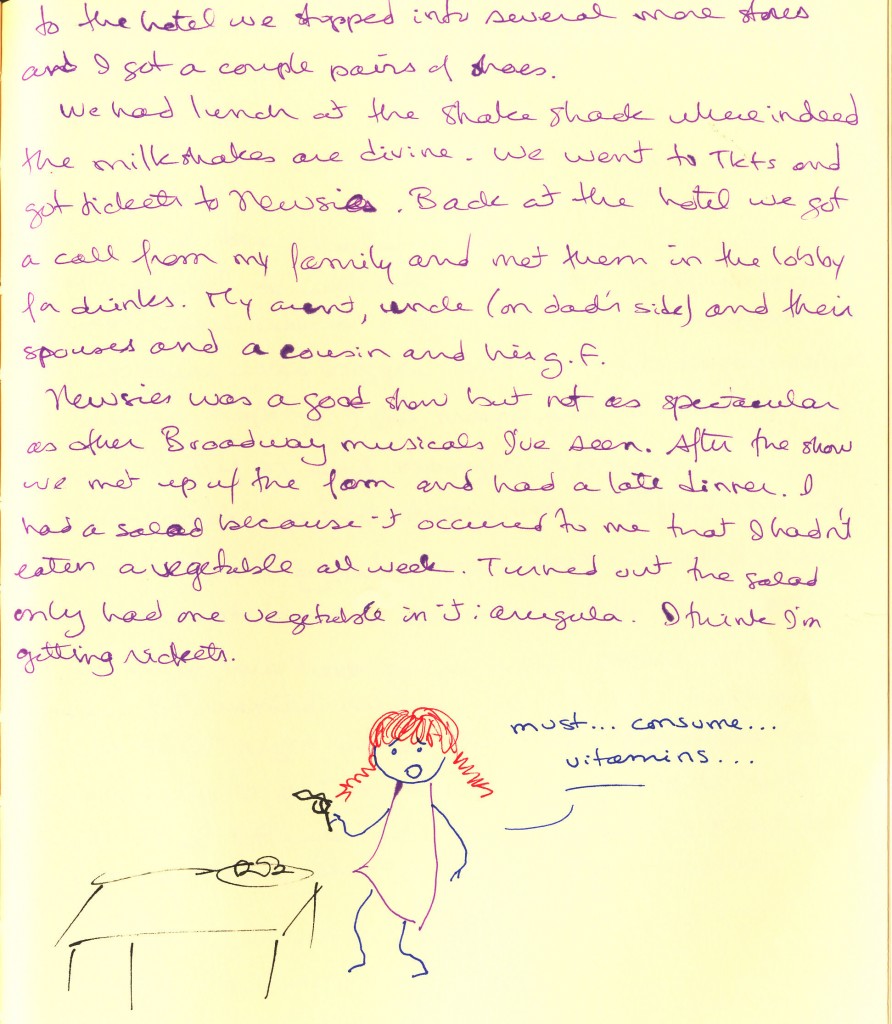 to the hotel we stopped into several more stores
and I got a couple pairs of shoes.
We had lunch at the shake shack where indeed
the milkshakes are divine. We went to Tkts and
got tickets to Newsies. Back at the hotel we got
a call from my family and met them in the lobby
for drinks. My aunt, uncle (on dad's side) and their
spouses and a cousin and his g.f.
Newsies was a good show but not as spectacular
as other Broadway musicals I've seen. After the show
we met up w/ the fam and had a late dinner. I
had a salad because it occured to me that I hadn't
eaten a vegetable all week. Turned out the salad
only had one vegetable in it: arugula. I think I'm
getting rickets.
must... consume...
vitamins...